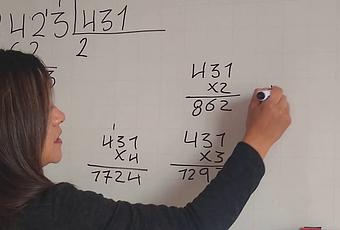 423 | 431
62
3
2
431
x2
862
1
431
x4
1724
431
x3
129